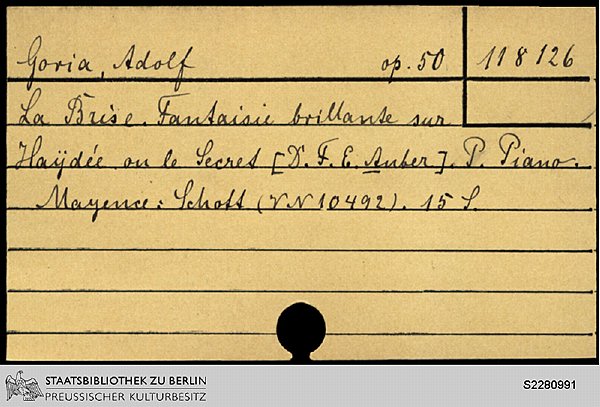 Goria, Adolf op. 50 118126
La Brise. Fantaisie brillante sur
Haÿdée ou le Secret [D. F. E. Auber]. P. Piano.
Mayence: Schott (VN 10492). 15 S.
STAATSBIBLIOTHEK ZU BERLIN
PREUSSISCHER KULTURBESITZ
S2280991